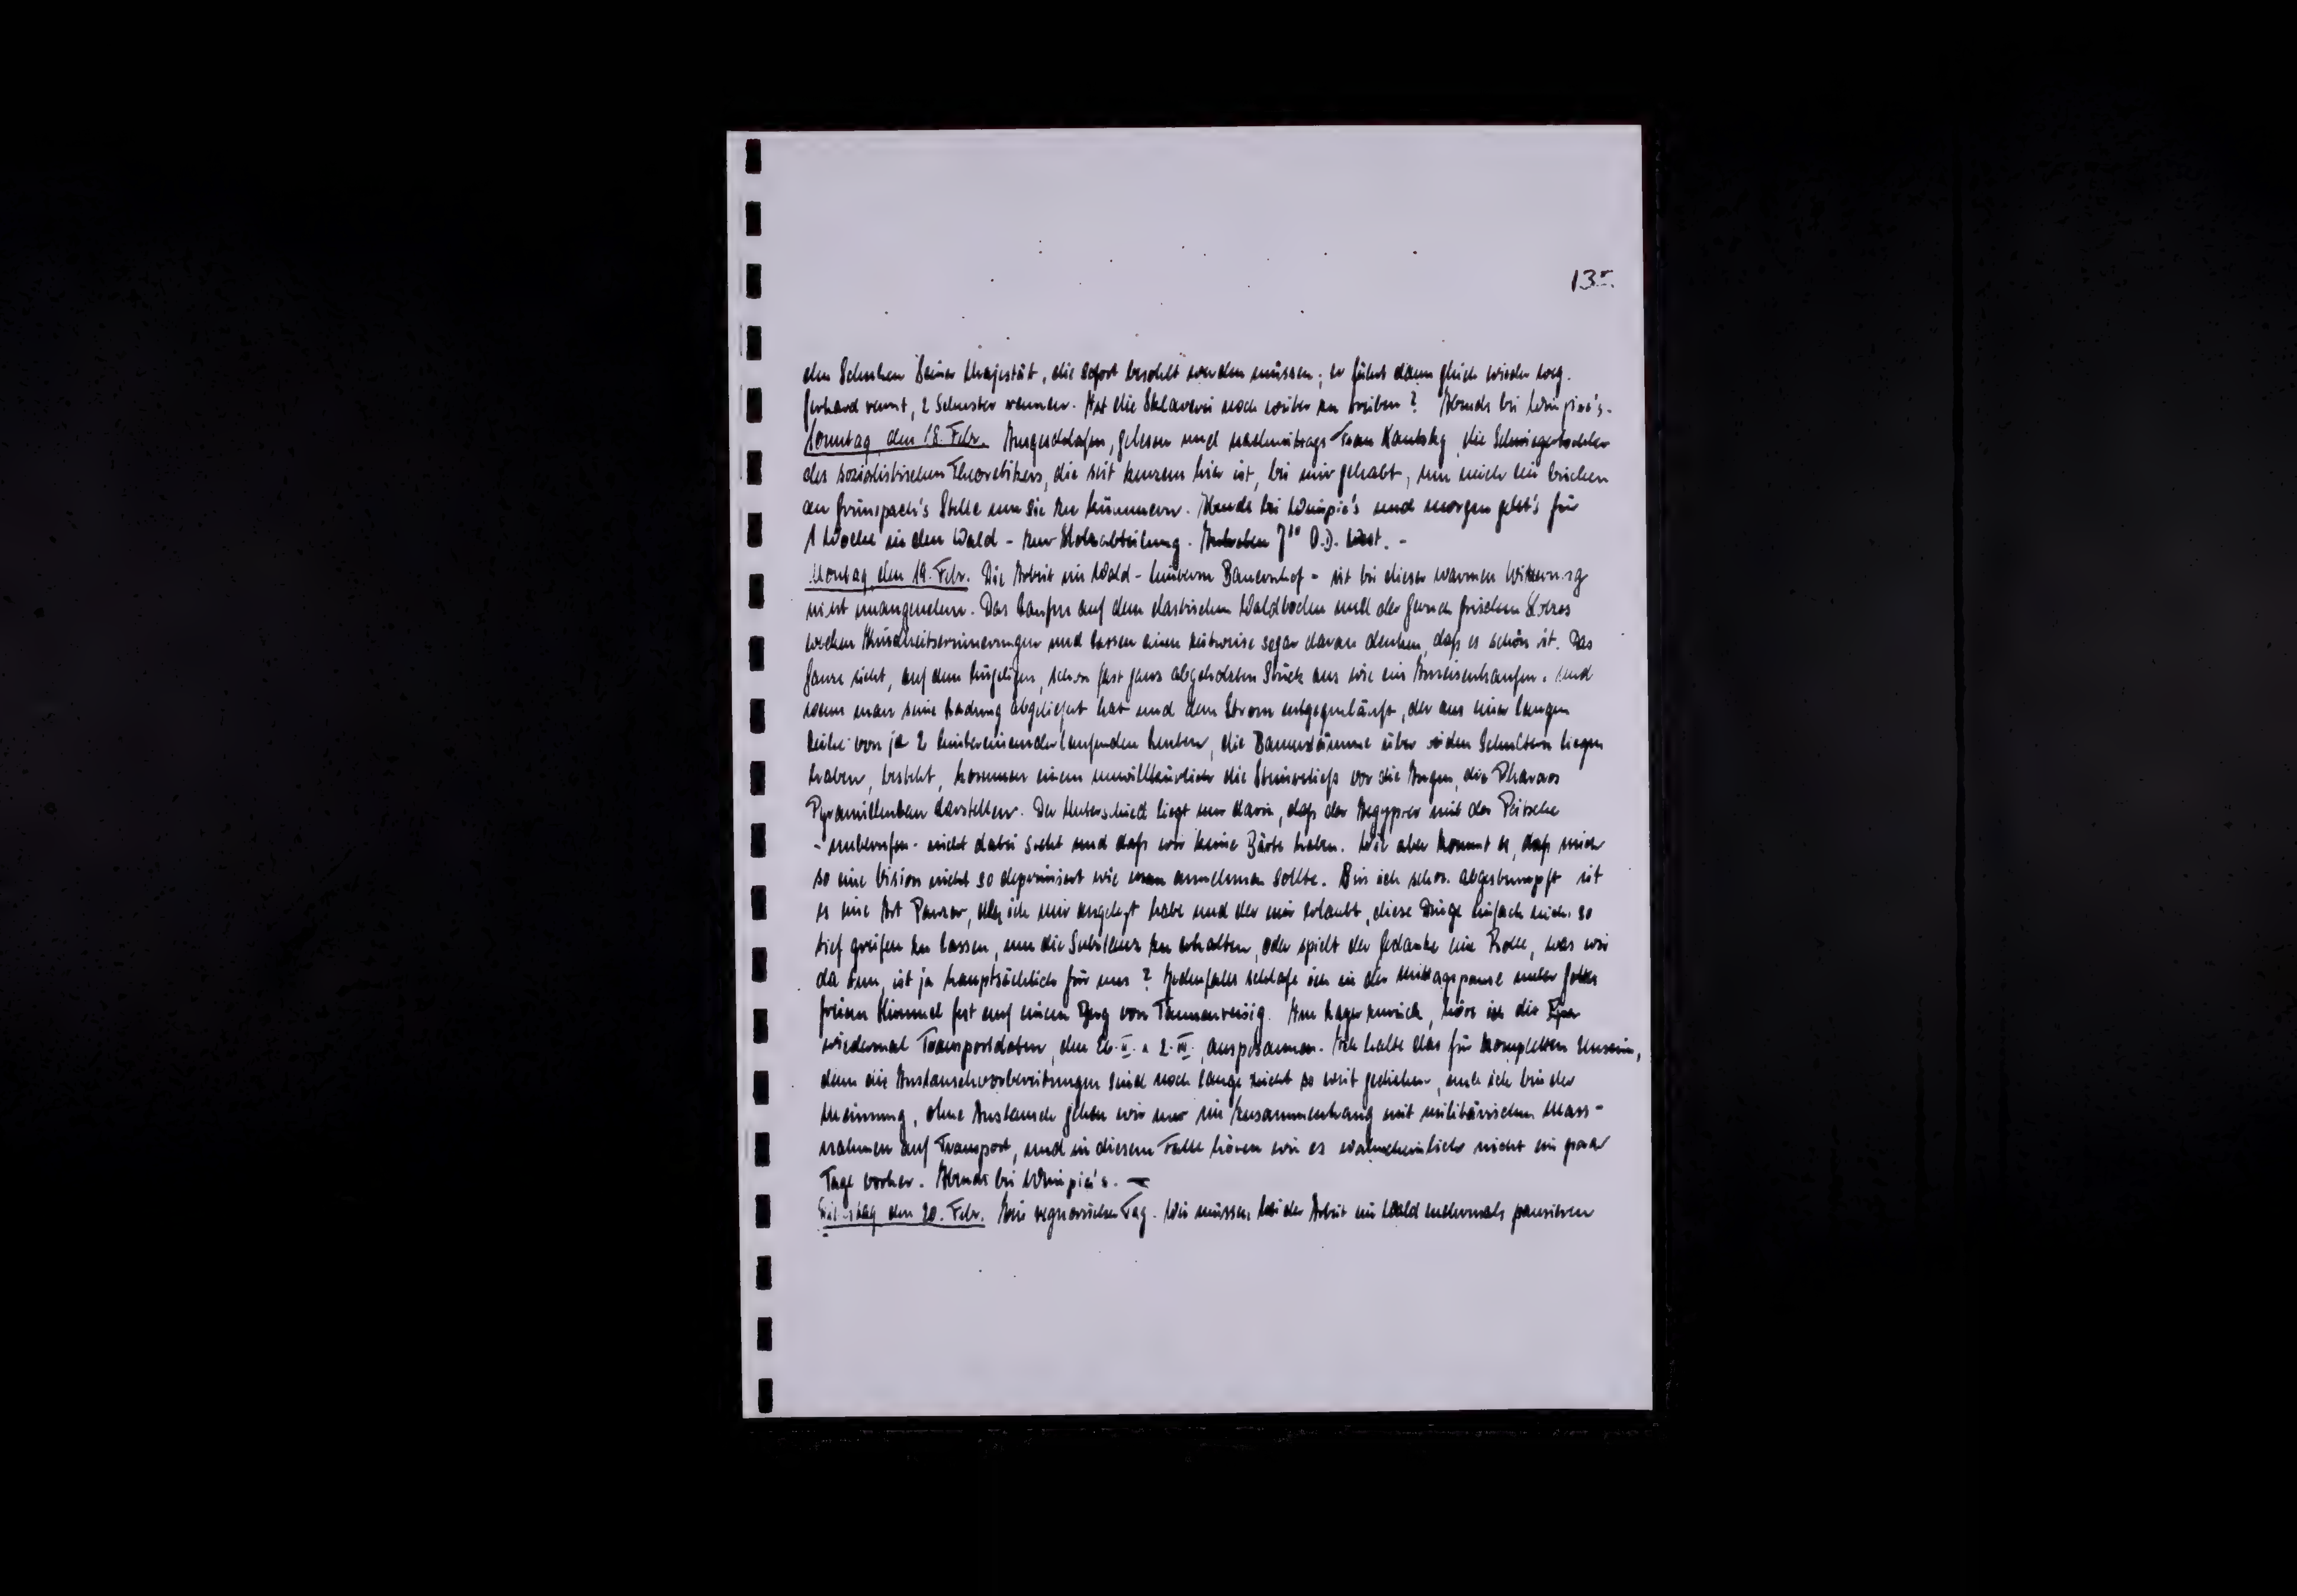 13r.
den Schuhen Seiner Majestät, die sofort besohlt werden müssen; er fährt dann gleich wieder weg.
Gerhard rennt, 2 Schuster rennen. Hat die Sklaverei noch weiter zu treiben? Abends bei Wimpie's.
Sonntag, den 18. Febr. Ausgeschlafen, gelesen und nachmittags Frau Kautsky, die Schwiegertochter
des sozialistischen Theoretikers, die seit kurzem hier ist, bei mir gehabt, um mich ein bischen
an Grünspach's Stelle um sie zu kümmern. Abends bei Wimpie's und morgen geht's für
1 Woche in den Wald - zur Holzabteilung. 7 O.D.
Montag, den 19. Febr. Die Arbeit im Wald - hinterm Bauernhof - ist bei dieser warmen Witterung
nicht unangenehm. Das Laufen auf dem elastischen Waldboden und der Geruch frischen Holzes
wecken Kindheitserinnerungen und lassen einen zeitweise sogar daran denken, daß es schön ist. Das
Ganze sieht, auf dem hügeligen, schon fast ganz abgeholzten Stück aus wie ein Ameisenhaufen. Und
wenn man seine Ladung abgeliefert hat und dem Strom entgegenläuft, der aus einer langen
Reihe von je 2 hintereinanderlaufenden Leuten, die Baumstämme über den Schultern liegen
haben, besteht, kommen einem unwillkürlich die Steinreliefs vor die Augen, die Pharaos
Pyramidenbau darstellen. Der Unterschied liegt nur darin, daß der Aegypter mit der Peitsche
- unberufen - nicht dabei steht und daß wir keine Bärte haben. Wie aber kommt es, daß mich
so eine Vision nicht so deprimiert wie man annehmen sollte. Bin ich schon abgestumpft ist
es eine Art Panzer, den ich mir angelegt habe und der mir erlaubt, diese Dinge einfach nicht so
tief greifen zu lassen, um die Substanz zu erhalten, oder spielt der Gedanke eine Rolle, was wir
da tun, ist ja hauptsächlich für uns? Jedenfalls schlafe ich in der Mittagspause unter Gottes
freien Himmel fest auf einem Berg von Tannenreisig. Am Lager zurück, höre ich die
wiedermal Transportdaten, den 26. II. u. 2. III. ausposaunen. Ich halte das für kompletten Unsinn,
denn die Austauschvorbereitungen sind noch lange nicht so weit gediehen, und ich bin der
Meinung, ohne Austausch gehen wir nur im Zusammenhang mit militärischen Mass-
nahmen auf Transport, und in diesem Falle hören wir es wahrscheinlich nicht ein paar
Tage vorher. Abends bei Wimpie's. -
Dienstag den 20. Febr. Ein regnerischer Tag. Wir müssen bei der Arbeit im Wald mehrmals pausieren